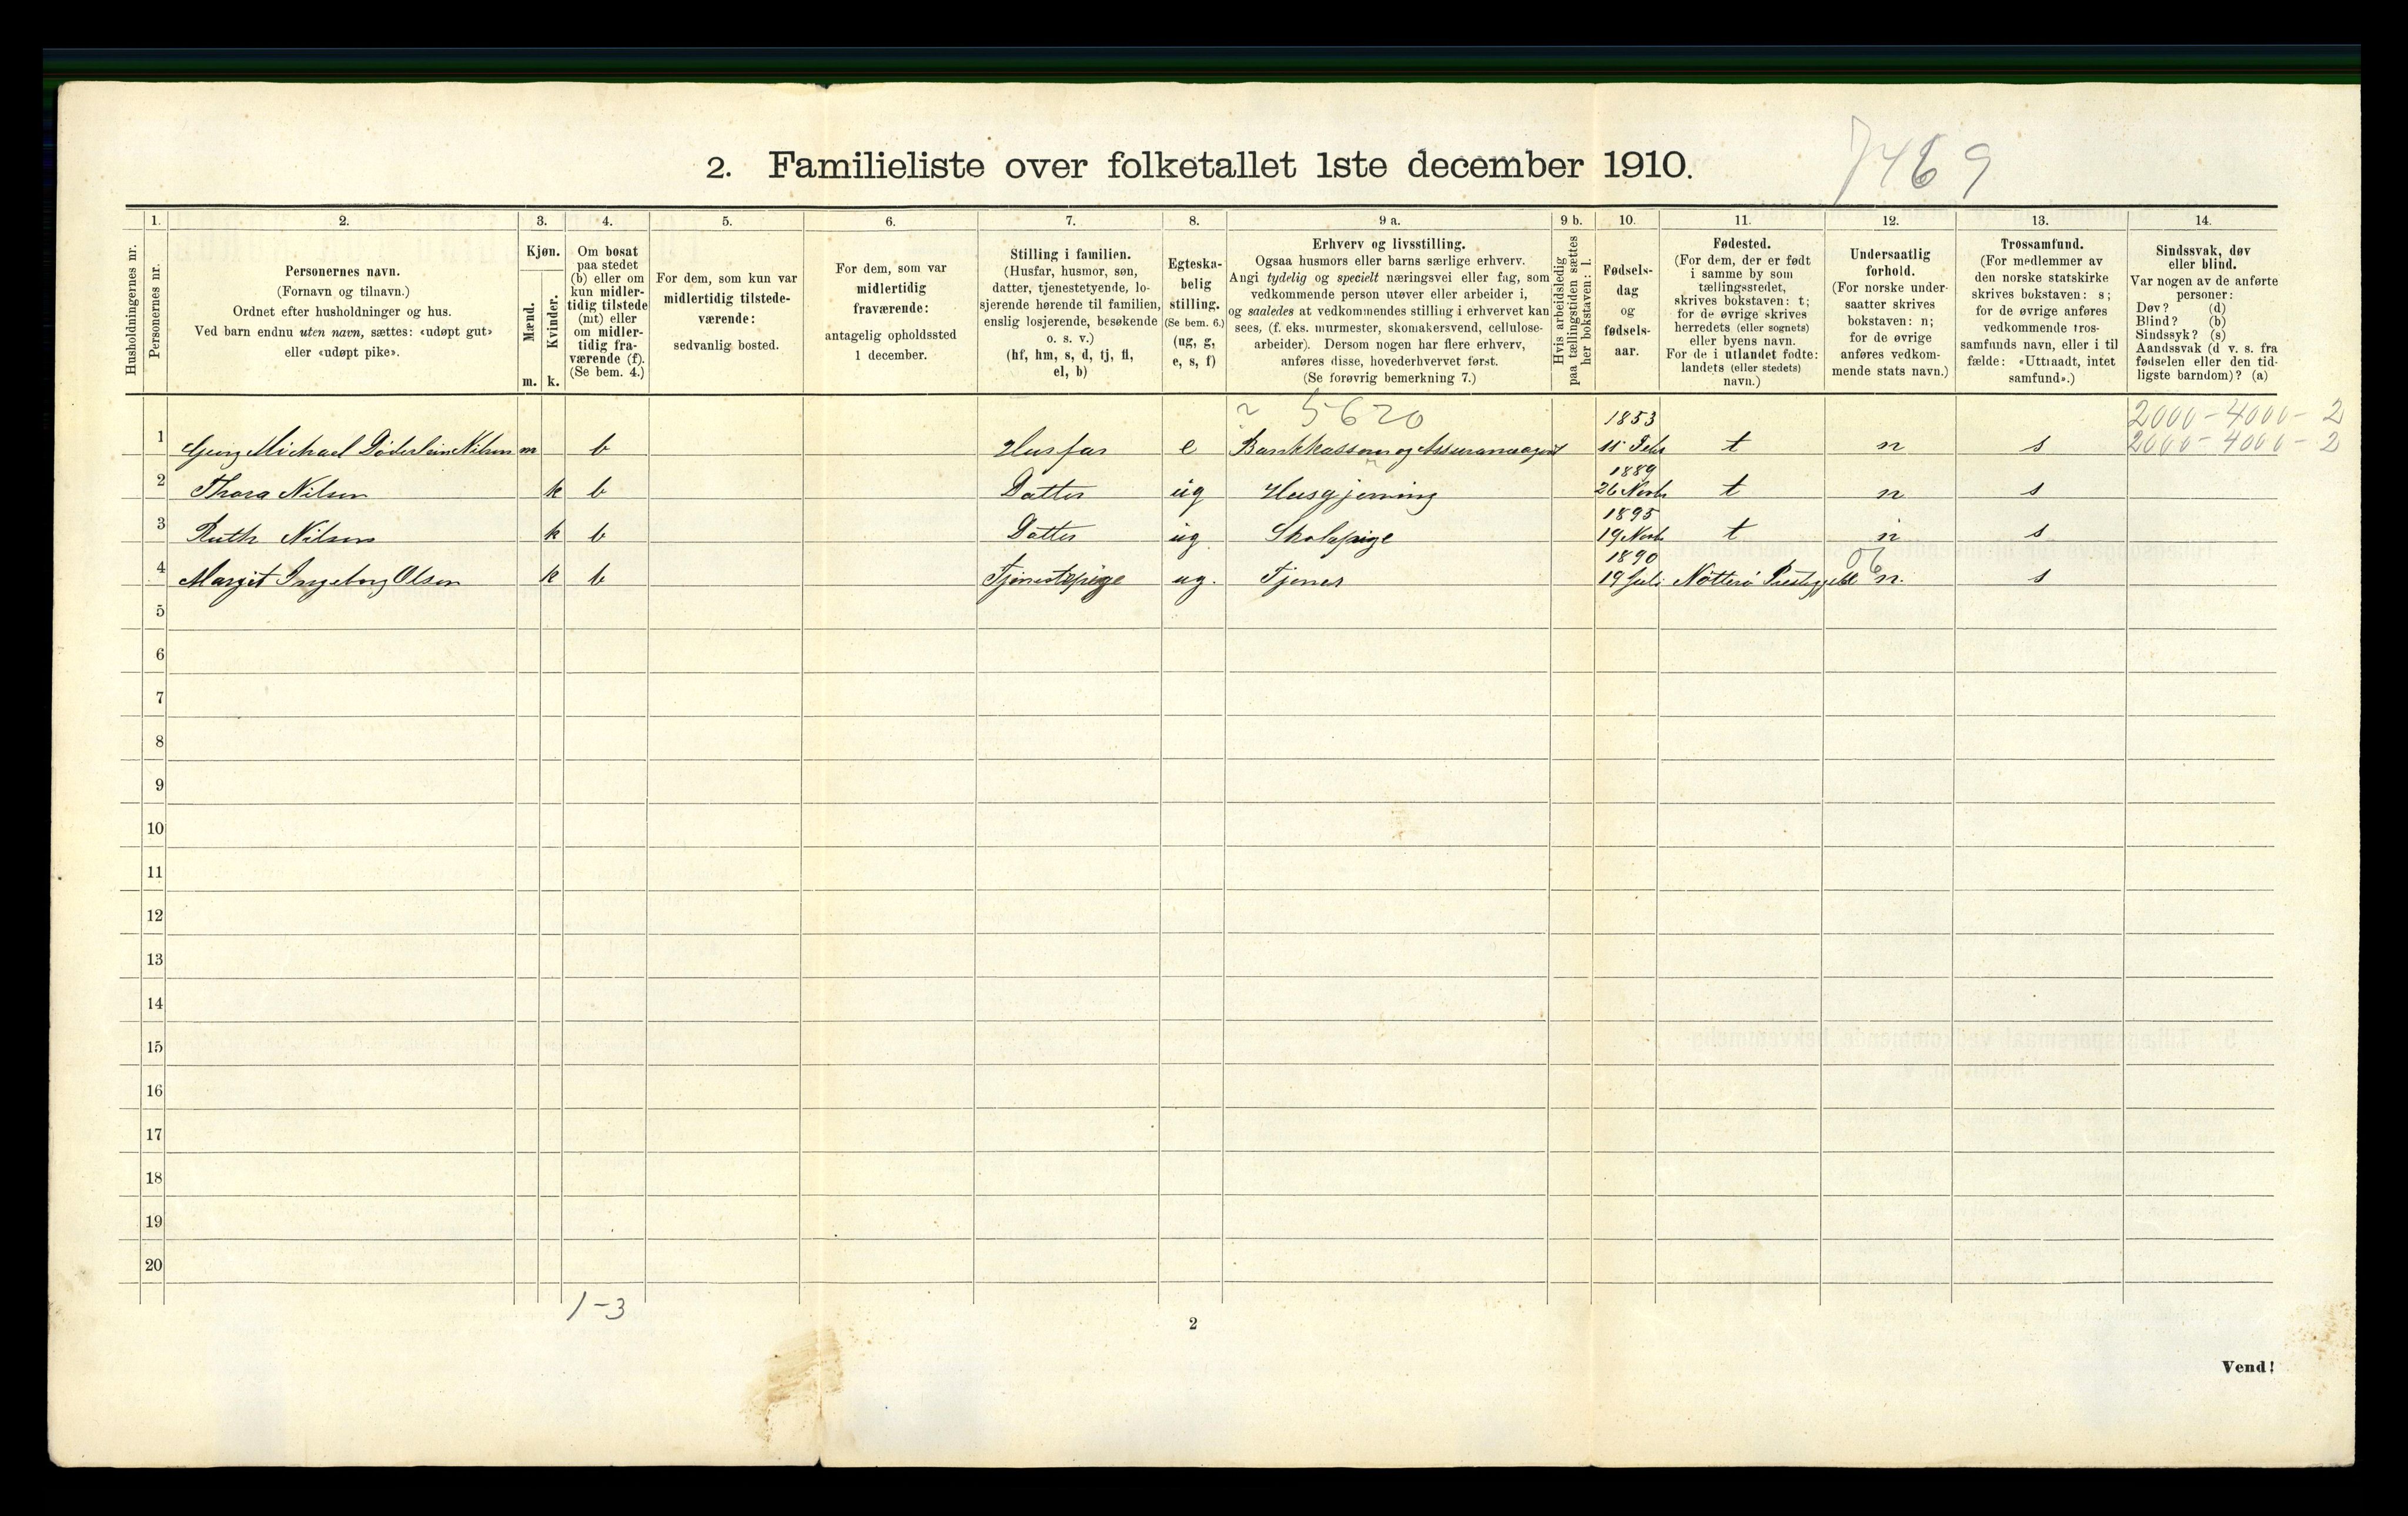 7469
2. Familieliste over folketallet 1ste december 1910.
Husholdningernes nr.
1.
Personernes nr.
2.
Personernes navn.
(Fornavn og tilnavn.)
Ordnet efter husholdninger og hus.
Ved barn endnu uten navn, sættes: «udøpt gut»
eller «udøpt pike».
3.
Kjøn.
Mænd.
Kvinder.
m. k.
4.
Om bosat
paa stedet
(b) eller om
kun midler-
tidig tilstede
(mt) eller
om midler-
tidig fra-
værende (f).
(Se bem. 4.)
5.
For dem, som kun var
midlertidig tilstede-
værende:
sedvanlig bosted.
6.
For dem, som var
midlertidig
fraværende:
antagelig opholdssted
1 december.
7.
Stilling i familien.
(Husfar, husmor, søn,
datter, tjenestetyende, lo-
sjerende hørende til familien,
enslig losjerende, besøkende
o. s. v.)
(hf, hm, s, d, tj, fl,
el, b)
8.
Egteska-
belig
stilling.
(Se bem. 6.)
(ug, g,
e, s, f)
9 a.
Erhverv og livsstilling.
Ogsaa husmors eller barns særlige erhverv.
Angi tydelig og specielt næringsvei eller fag, som
vedkommende person utøver eller arbeider i,
og saaledes at vedkommendes stilling i erhvervet kan
sees, (f. eks. murmester, skomakersvend, cellulose-
arbeider). Dersom nogen har flere erhverv,
anføres disse, hovederhvervet først.
(Se forøvrig bemerkning 7.)
9 b.
Hvis arbeidsledig
paa tællingstiden sættes
her bokstaven: l.
10.
Fødsels-
dag
og
fødsels-
aar.
11.
Fødested.
(For dem, der er født
i samme by som
tællingsstedet,
skrives bokstaven: t;
for de øvrige skrives
herredets (eller sognets)
eller byens navn.
For de i utlandet fødte:
landets (eller stedets)
navn.)
12.
Undersaatlig
forhold.
(For norske under-
saatter skrives
bokstaven: n;
for de øvrige
anføres vedkom-
mende stats navn.)
13.
Trossamfund.
(For medlemmer av
den norske statskirke
skrives bokstaven: s;
for de øvrige anføres
vedkommende tros-
samfunds navn, eller i til
fælde: «Uttraadt, intet
samfund».)
14.
Sindssvak, døv
eller blind.
Var nogen av de anførte
personer:
Døv? (d)
Blind? (b)
Sindssyk? (s)
Aandssvak (d v. s. fra
fødselen eller den tid-
ligste barndom)? (a)
5620 1853 2000-4000-2
1 Georg Michael Döderlein Nilsen m b Husfar e Bankkasserer og Assuranceagent 15 Febr t n s 2000-4000-2
1889
2 Thora Nilsen k b Datter ug Husgjerning 26 Novbr t n s
1895
3 Ruth Nilsen k b Datter ug. Skolepige 19 Novb t n s
1890 06
4 Margit Ingeborg Olsen k b Tjenestepige ug. Tjener 19 Juli Nötterö Prestegjeld n. s
5
6
7
8
9
10
11
12
13
14
15
16
17
18
19
20
1-3
2
Vend!